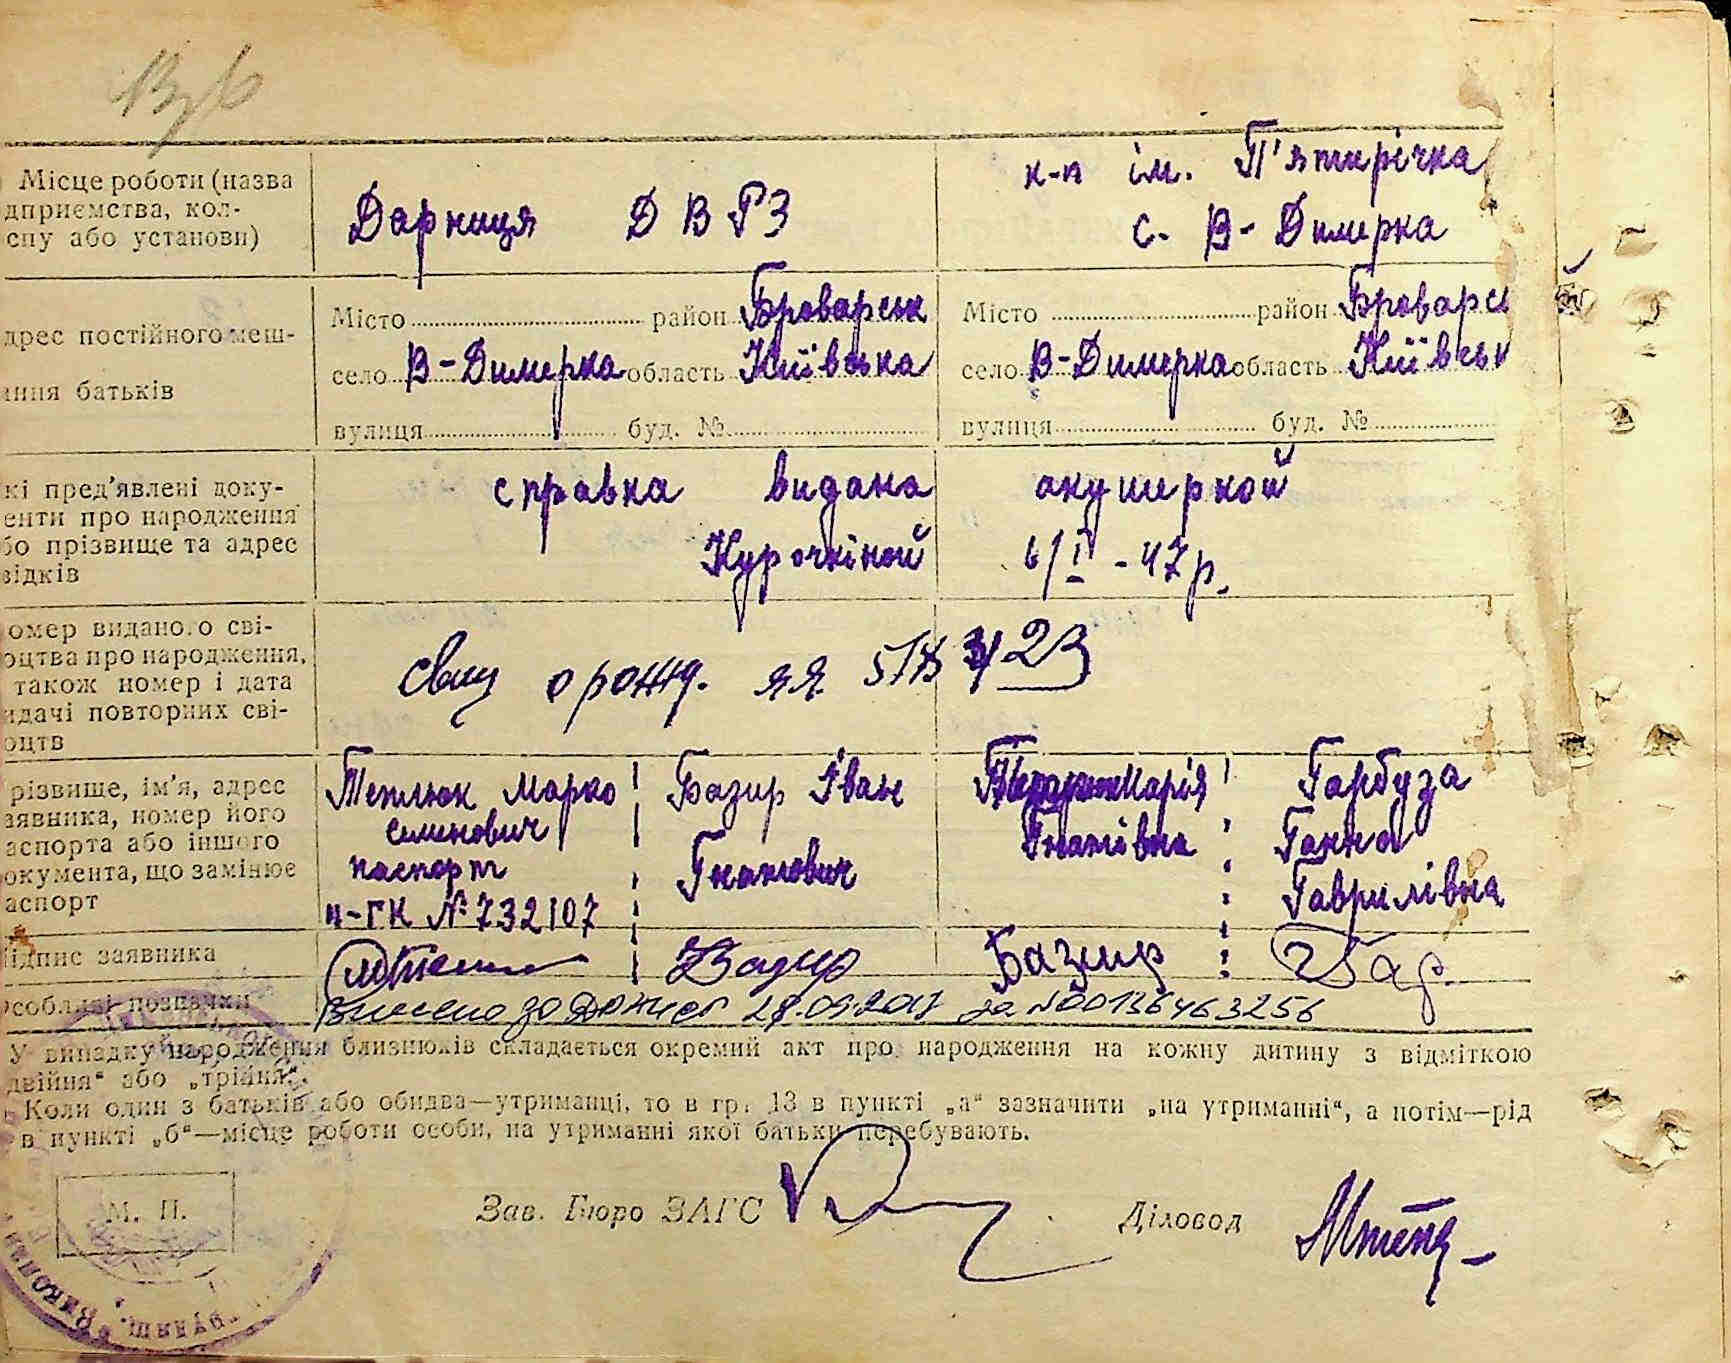 Місце роботи (назва
дприємства, кол-
спу або установи)
Дарниця Д В Р З
к-п ім. П'ятирічка
с. В-Димерка
дрес постійного меш-
ання батьків
Місто район Броварськ
село В-Димерка область Київська
вулиця буд. №
Місто район Броварсь
село В-Димерка область Київськ
вулиця буд. №
кі пред'явлені доку-
енти про народження
бо прізвище та адрес
відків
справка видана акушеркой
Курочкіной 6/І-47р.
омер виданого сві-
оцтва про народження,
також номер і дата
идачі повторних сві-
оцтв
о рожд. ЯЯ 23
різвище, ім'я, адрес
аявника, номер його
аспорта або іншого
окумента, що замінює
аспорт
Теплюк Марко
Семенович
паспорт
№ 732107
Базир Іван
Гнатович
Марія
Гнатівна
Гарбуза
Ганна
Гаврилівна
ідпис заявника
Базир
Базир
Гар.
особливі позначки
Внесено до ДРАЦСГ 28.09.2017 за №00136463256
У випадку народження близнюків складається окремий акт про народження на кожну дитину з відміткою
двійня“ або „трійня“.
Коли один з батьків або обидва—утриманці, то в гр. 13 в пункті „а“ зазначити „на утриманні“, а потім—рід
в пункті „б“—місце роботи особи, на утриманні якої батьки перебувають.
М. П.
Зав. Бюро ЗАГС
Діловод